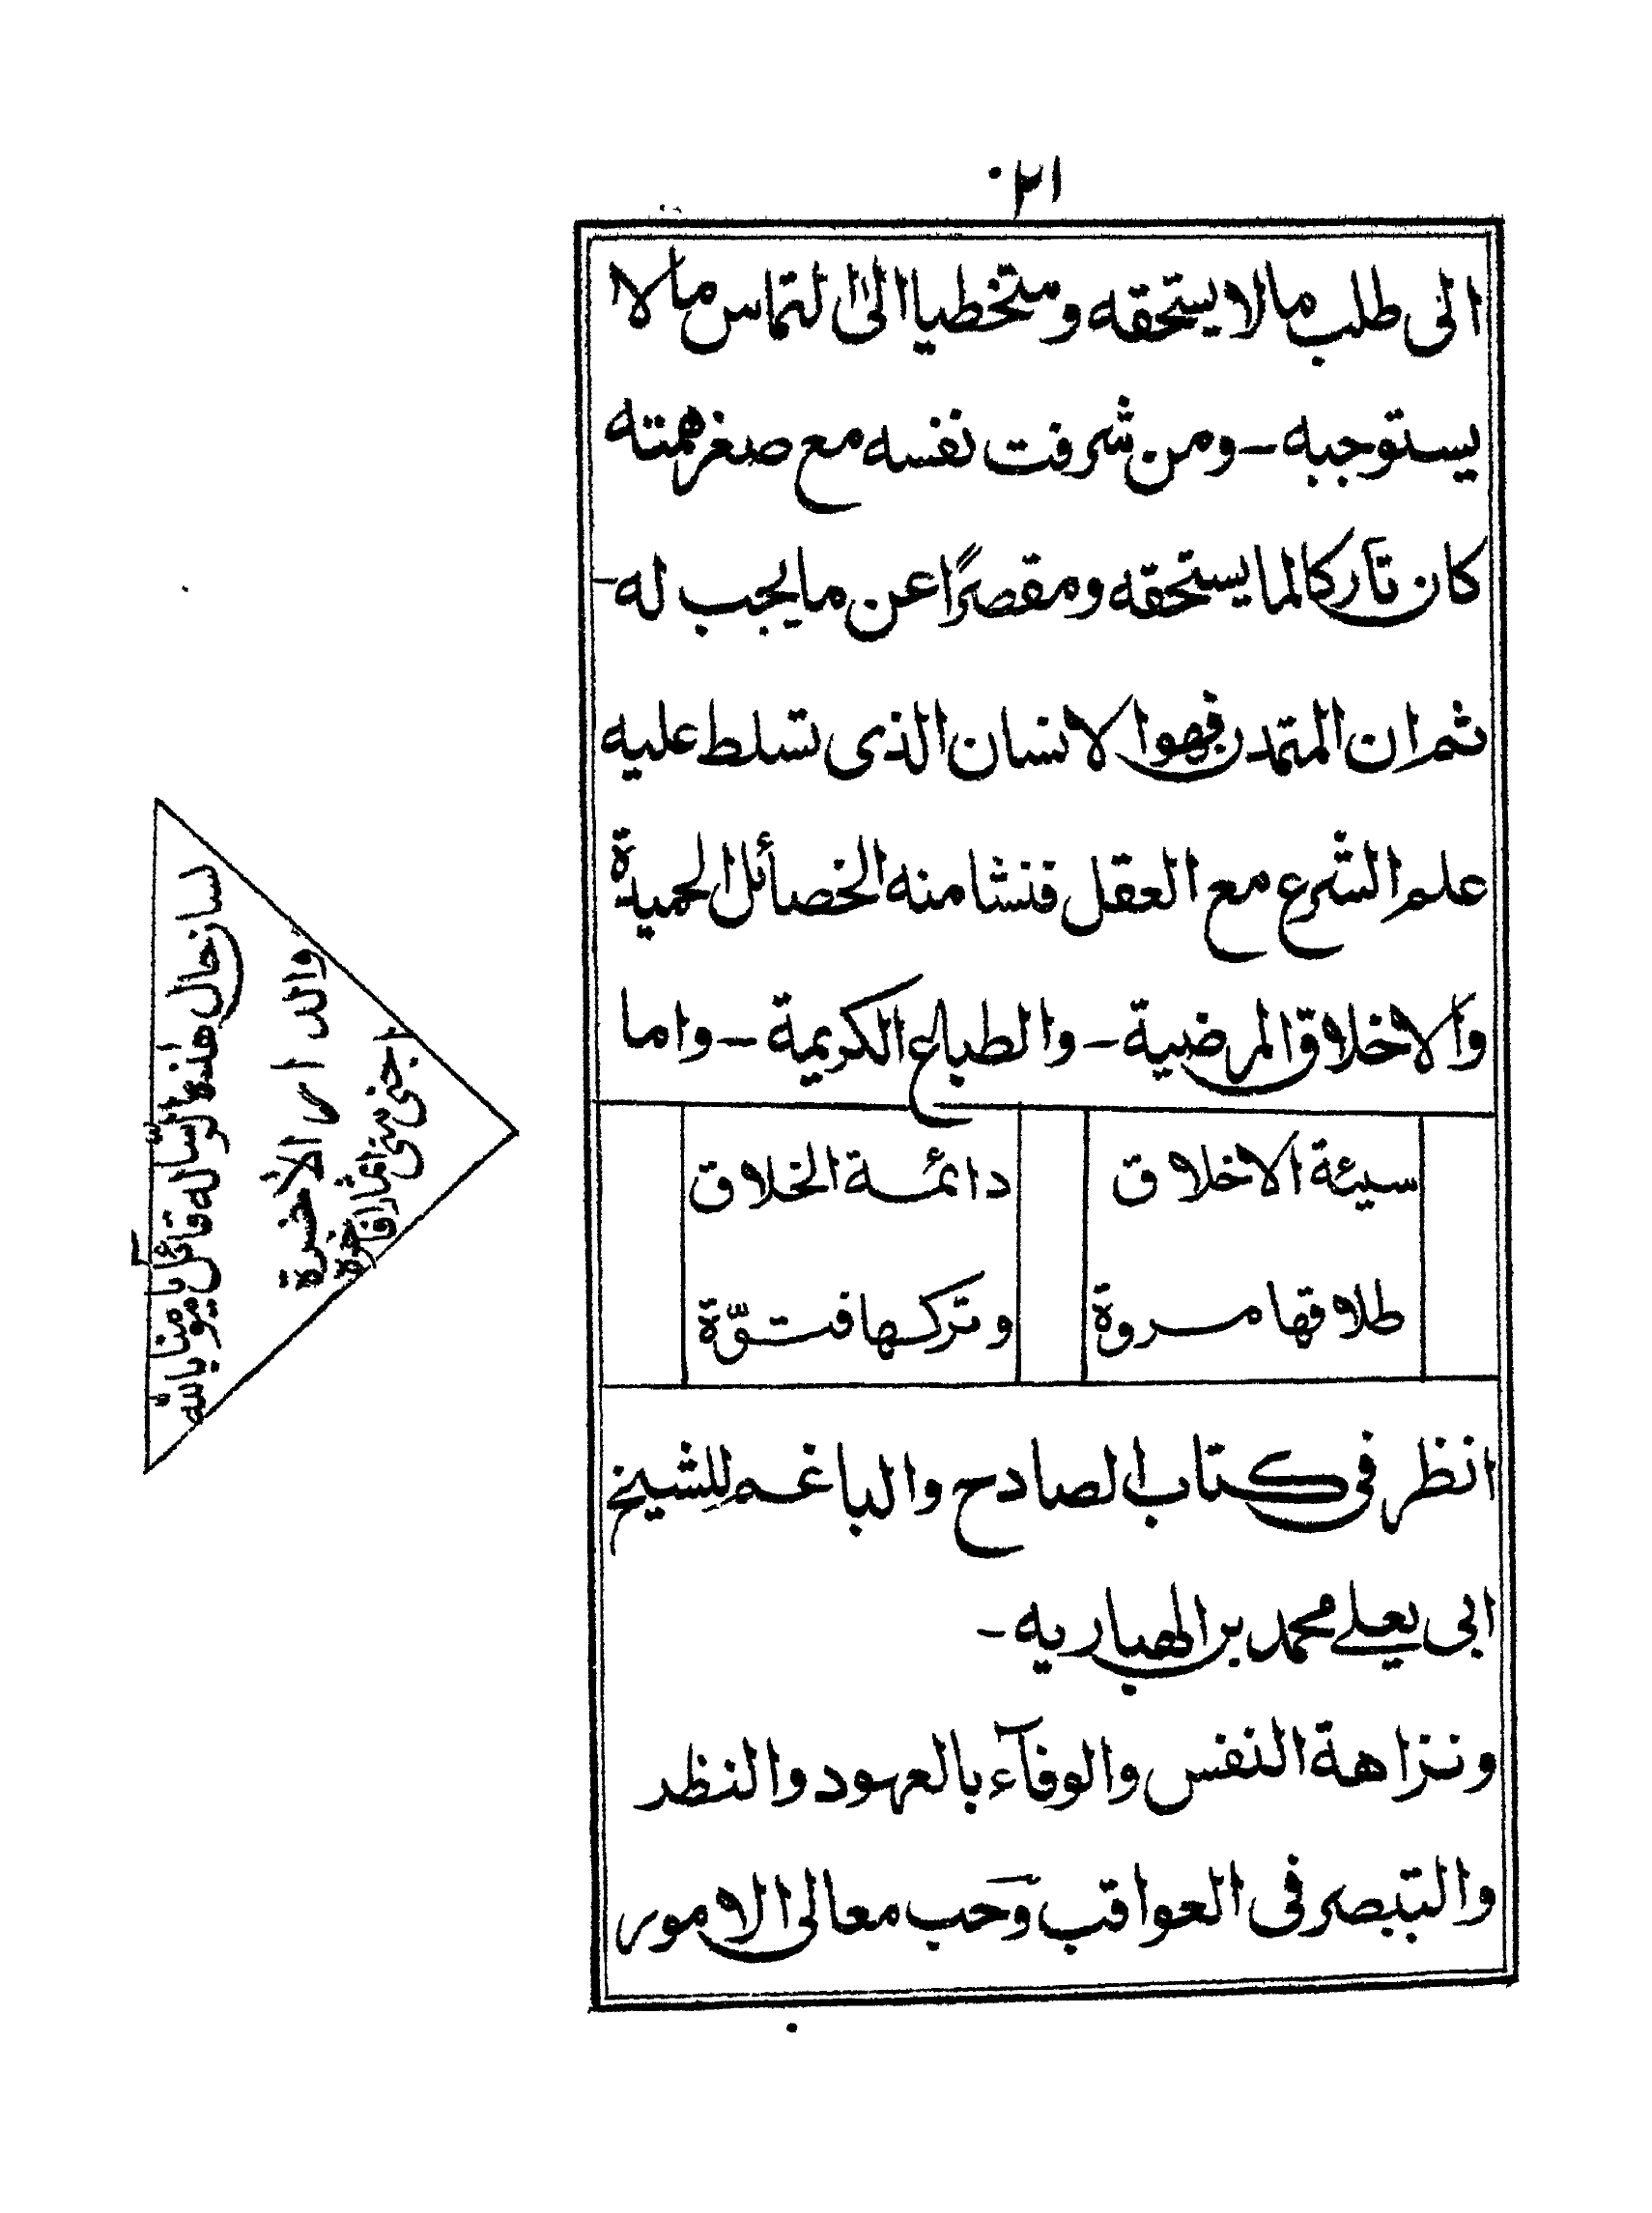 ٢١
الى طلب مالا يستحقه ومتخطيا الى التماس مالا
يستوجبه - ومن شرفت نفسه مع صغر همته
كان تاركا لما يستحقه ومقصرًا عن ما يجب له -
ثم ان المتمدن فهوا لانسان الذى تسلط عليه
علم الشرع مع العقل فنشا منه الخصائل الحميدة
والاخلاق المرضية - والطباع الكريمة - واما
سيئة الاخلاق
دائمة الخلاق
طلاقها مروة
وتركها فتوّة
انظر فى كتاب الصادح والباغم للشيخ
ابى يعلے محمد بن الهباريه -
ونزاهة النفس والوفآء بالعهود والنظر
والتبصر فى العواقب وحب معالى الامور
لسان حال هذه الرسالة قائل يا مومنا بالله
والدار الاخرة